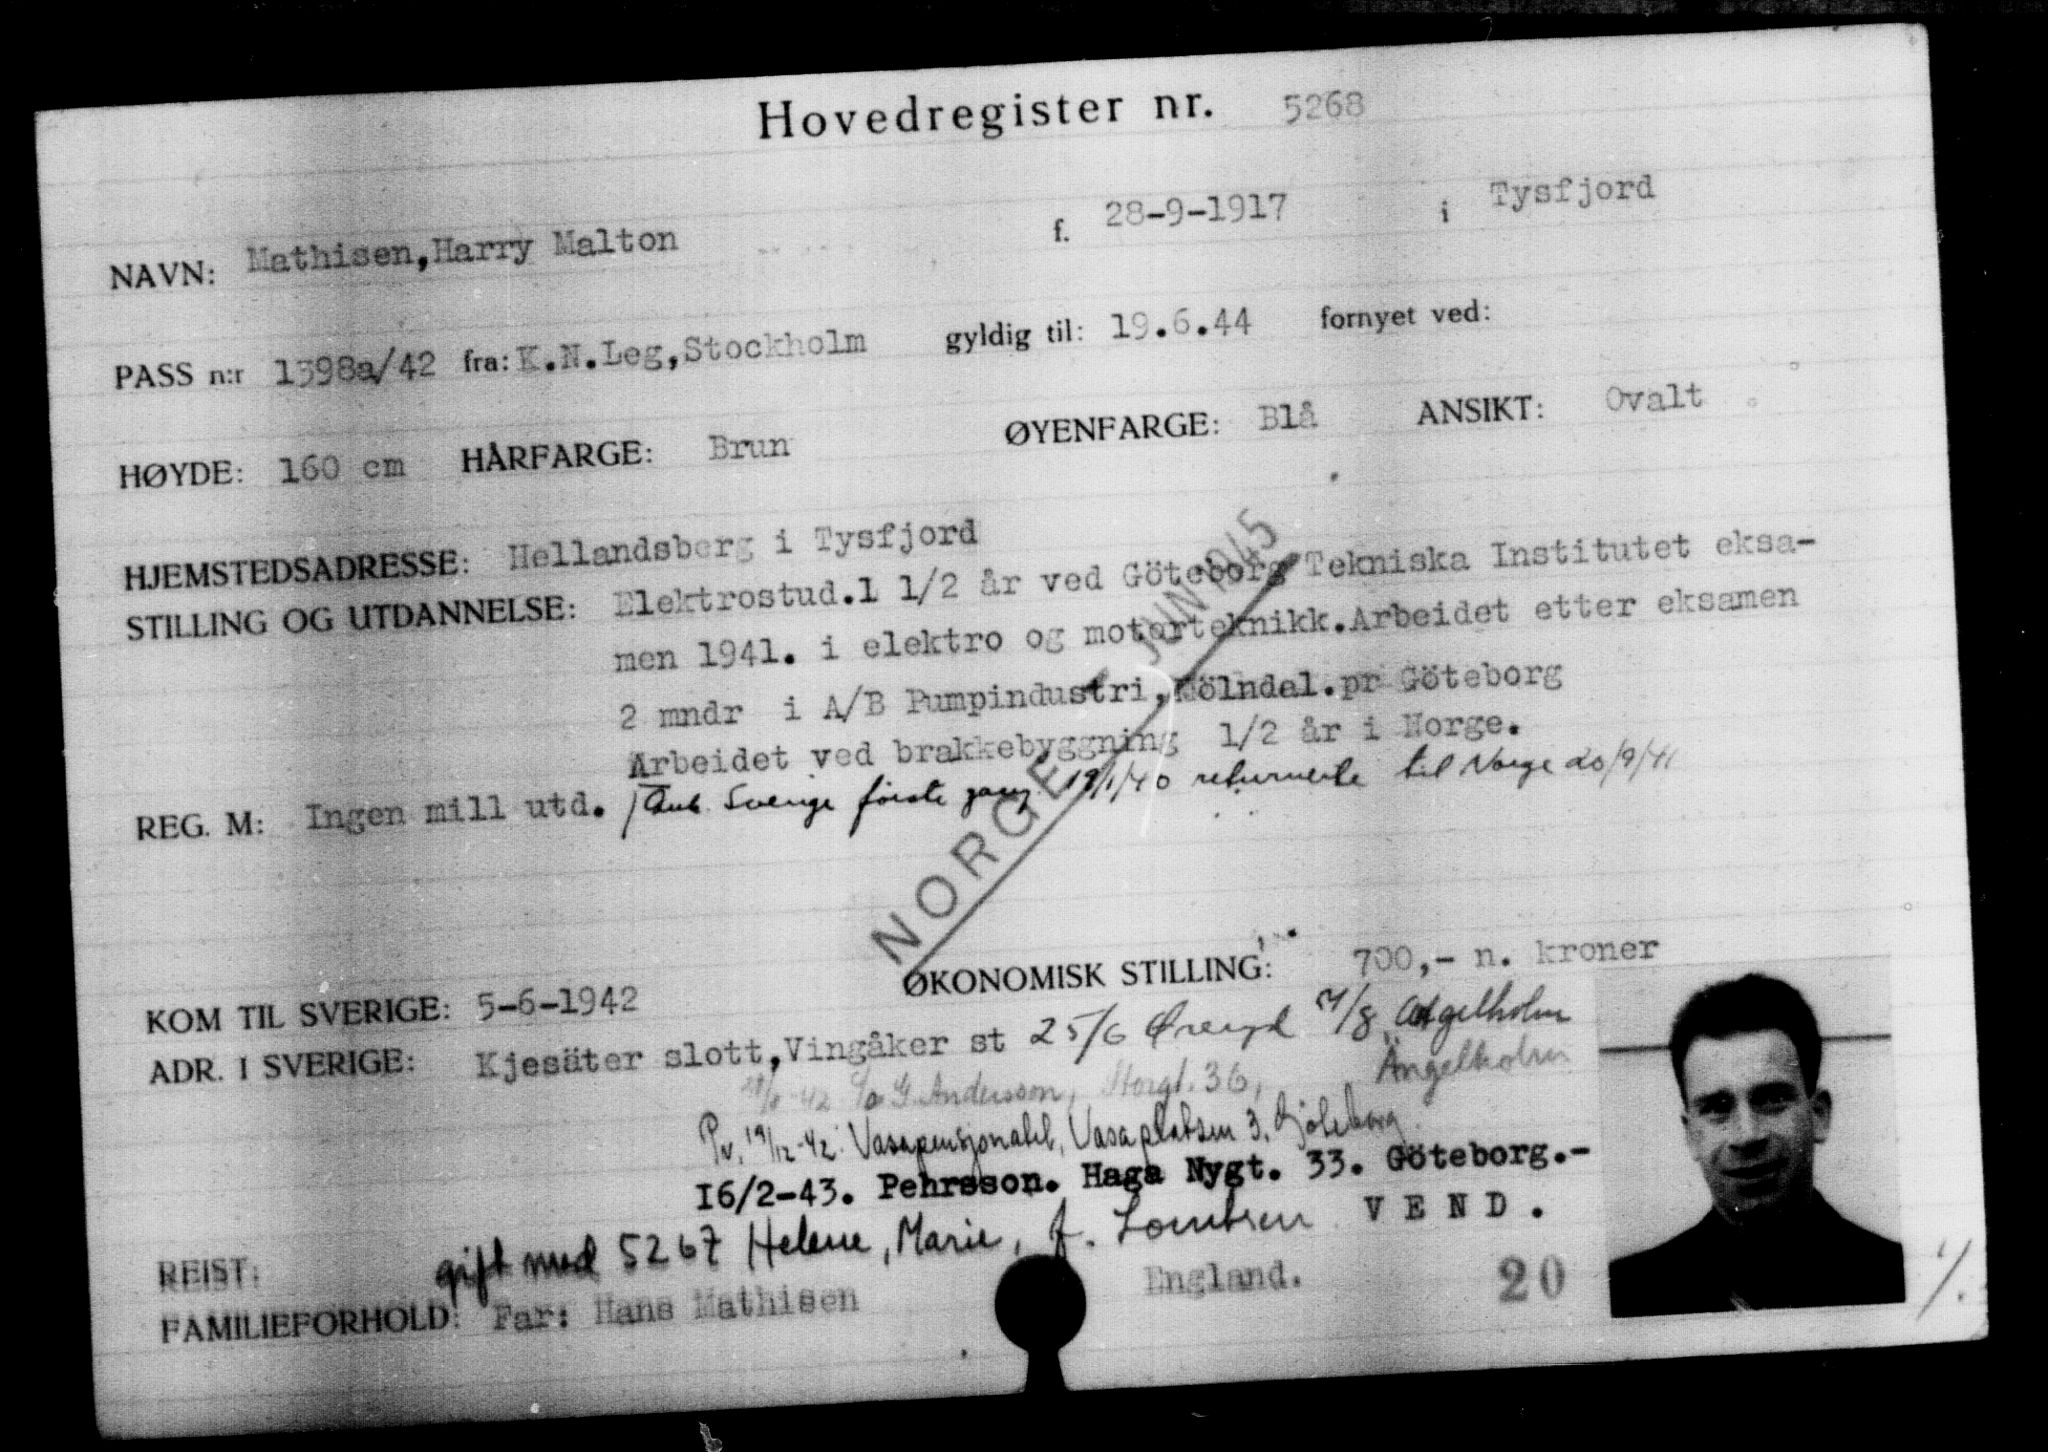 Hovedregister nr. 5268
NAVN: Mathisen,Harry Malton f. 28-9-1917 i Tysfjord
PASS n:r 1398a/42 fra: K.N.Leg,Stockholm gyldig til: 19.6.44 fornyet ved:
HØYDE: 160 cm HÅRFARGE: Brun ØYENFARGE: Blå ANSIKT: Ovalt
HJEMSTEDSADRESSE: Hellandsberg i Tysfjord
STILLING OG UTDANNELSE: Elektrostud.1 1/2 år ved Göteborg Tekniska Institutet eksa-
men 1941. i elektro og motorteknikk.Arbeidet etter eksamen
2 mndr i A/B Pumpindustri,Mölndal.pr Göteborg
Arbeidet ved brakkebyggning 1/2 år i Norge.
REG. M: Ingen mill utd. / Ank. Sverige første gang 19/1/40 returnerte til Norge 20/9/41
NORGE JUN 1945
ØKONOMISK STILLING: 700,- n. kroner
KOM TIL SVERIGE: 5-6-1942
ADR. I SVERIGE: Kjesäter slott,Vingåker st 25/6 Øreryd /8 Ängelholm
-42 c/o G. Andersson, Storgt. 36, Ängelholm
Pv. 19/12-42: Vasapensjonatet, Vasaplatsen 3, Gøteborg.
16/2-43. Pehrsson. Haga Nygt. 33. Göteborg.-
gift med 5267 Helene, Marie, f. VEND.
REIST: England. 20
FAMILIEFORHOLD: Far: Hans Mathisen
1/.